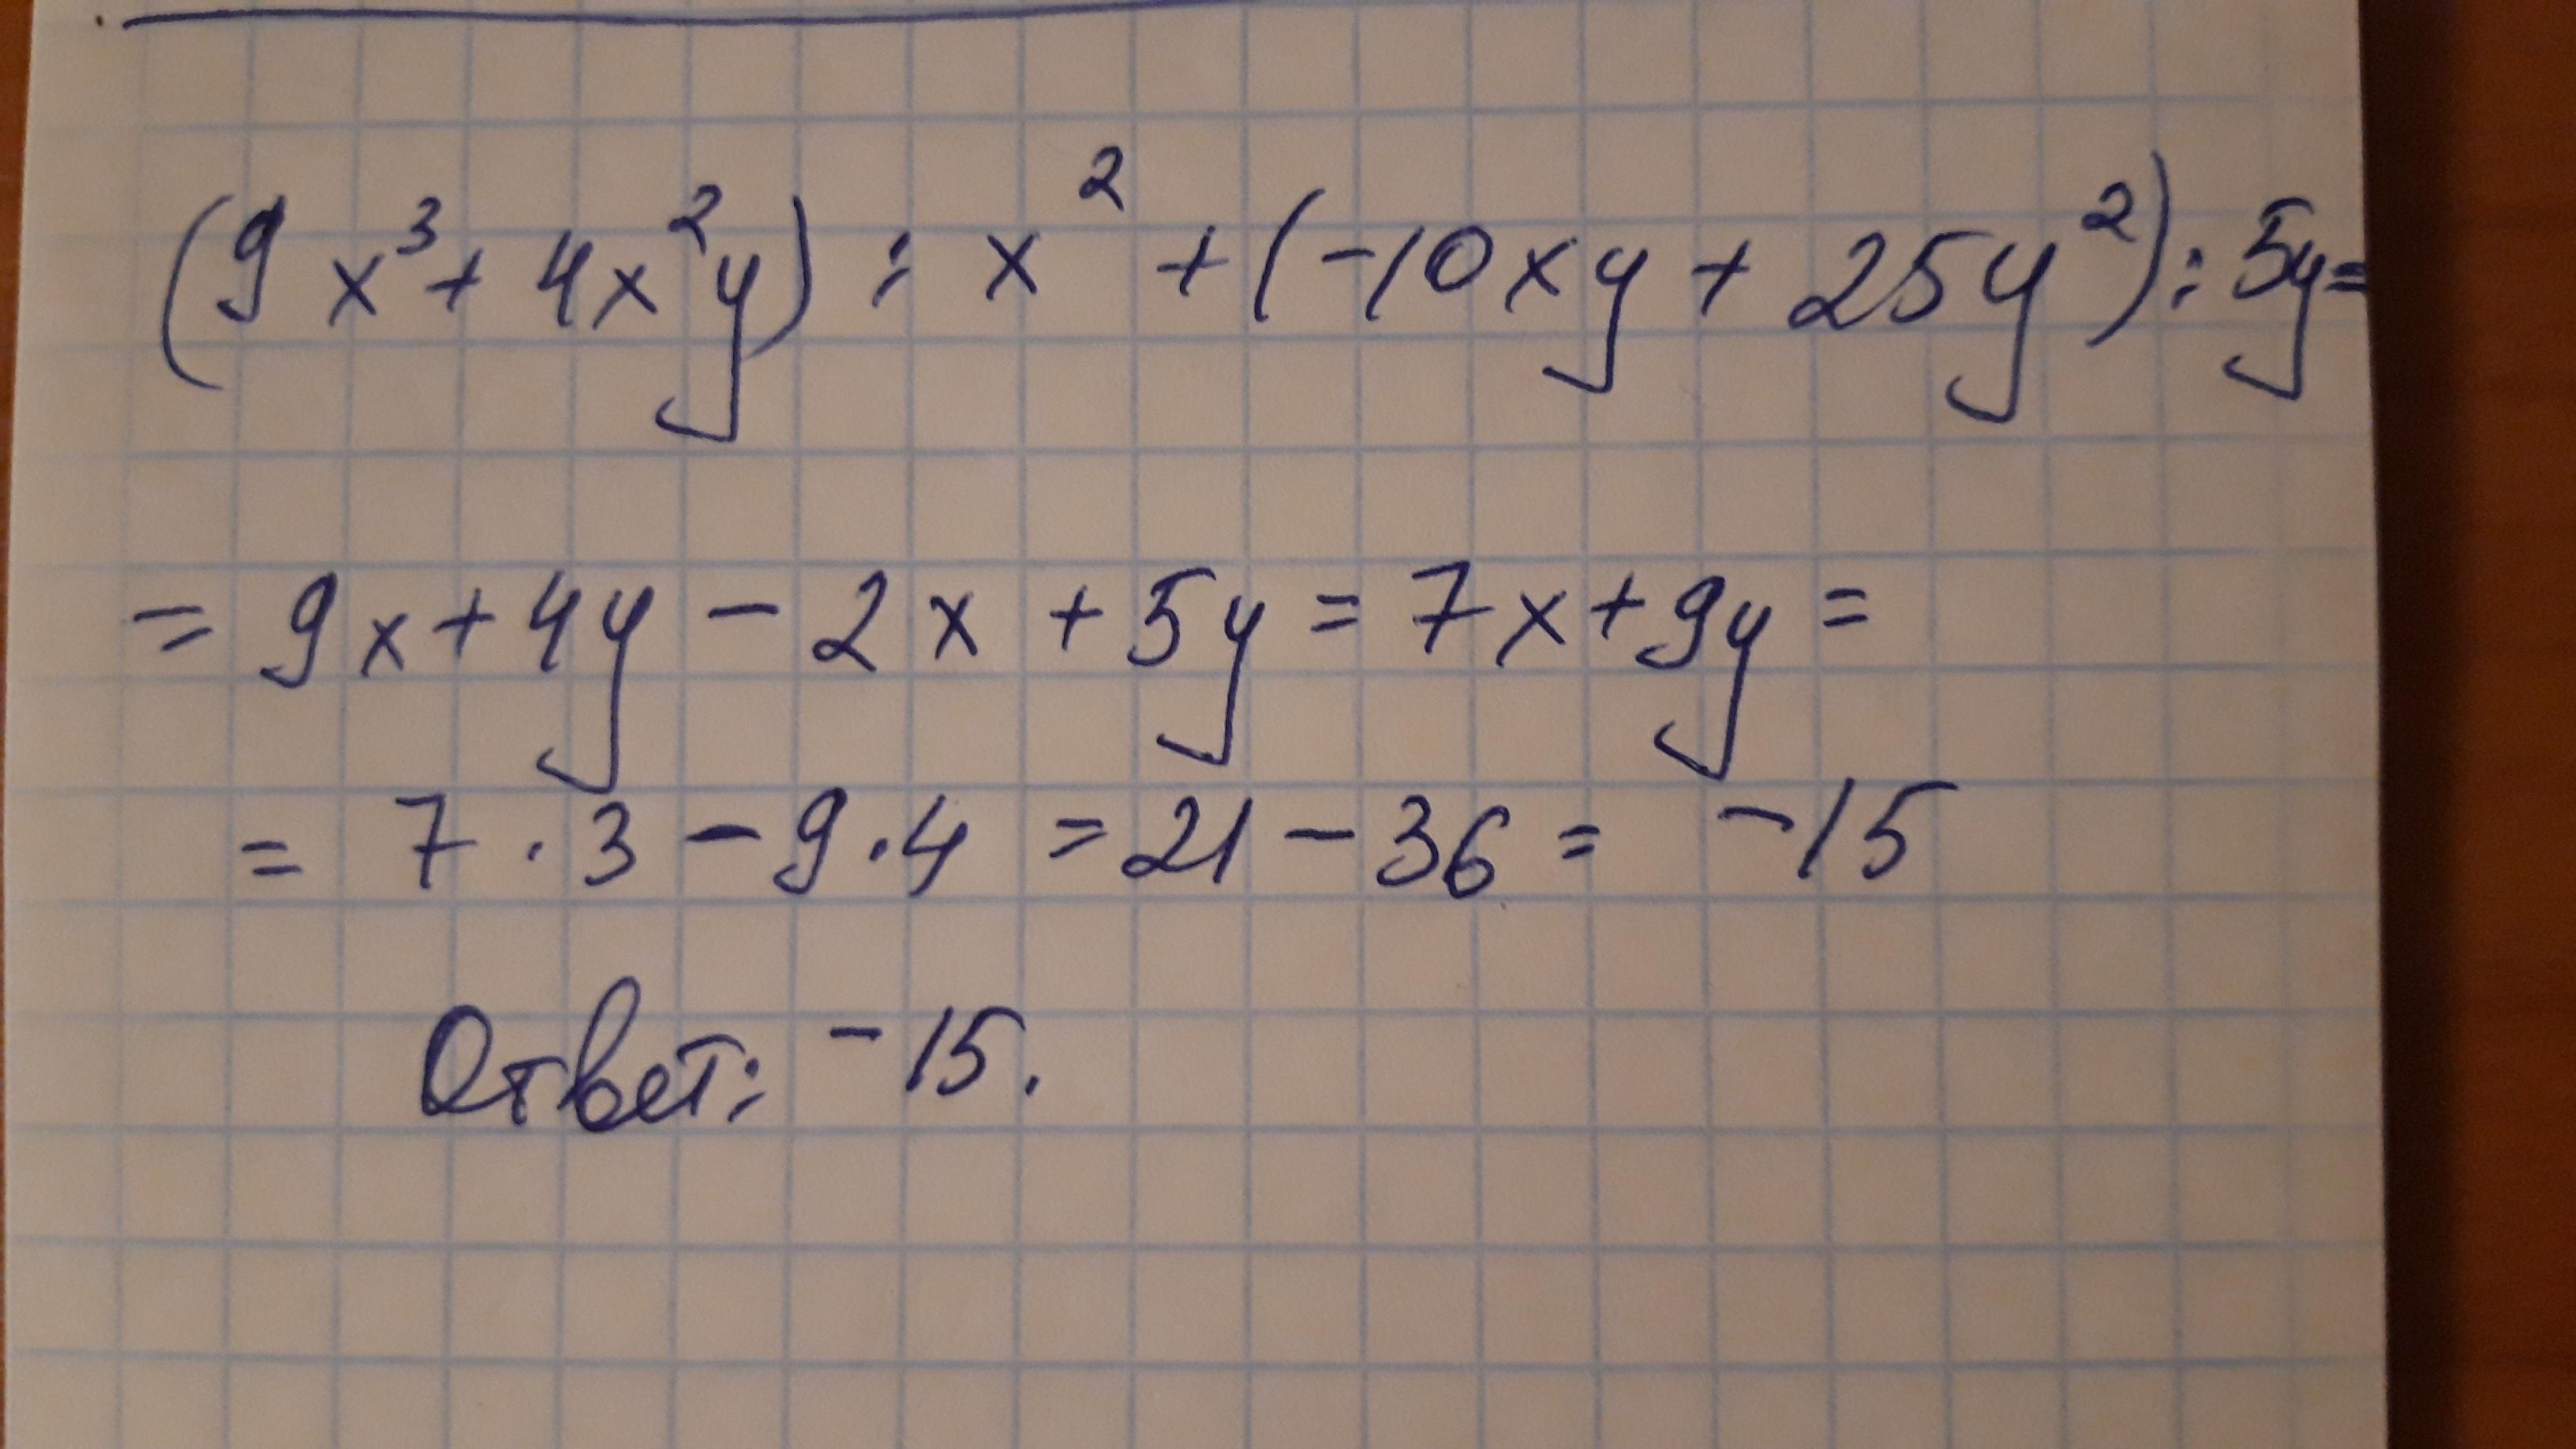 (9x³+4x²y) : x² + (-10xy + 25y²) : 5y=
= 9x+4y - 2x + 5y = 7x+9y =
= 7 · 3 - 9 · 4 = 21 - 36 = -15
Ответ: -15.